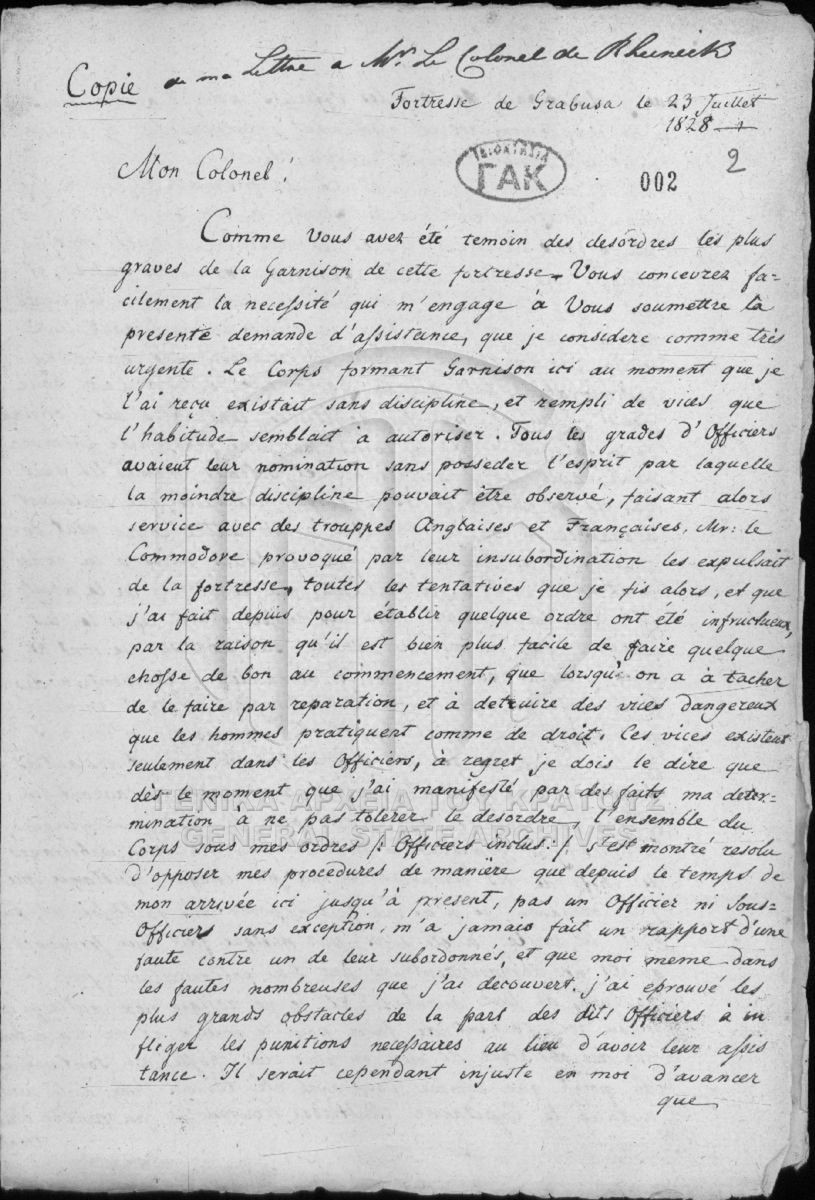 Copie de ma Lettre a Mr. Le Colonel de Rheineck
Fortresse de Grabusa le 23 Juillet
1828
ΓΑΚ
002
2
Mon Colonel!
Comme Vous avez été temoin des desordres les plus
graves de la Garnison de cette fortresse. Vous concevrez fa-
cilement la necessité qui m'engage à Vous soumettre la
presente demande d'assistance, que je considere comme très
urgente. Le Corps formant Garnison ici au moment que je
l'ai reçu existait sans discipline, et rempli de vices que
l'habitude semblait à autoriser. Tous les grades d'Officiers
avaient leur nomination sans posseder l'esprit par laquelle
la moindre discipline pouvait être observé, faisant alors
service avec des trouppes Anglaises et Françaises, Mr: le
Commodore provoqué par leur insubordination les expulsait
de la fortresse, toutes les tentatives que je fis alors, et que
j'ai fait depuis pour établir quelque ordre ont été infructueux,
par la raison qu'il est bien plus facile de faire quelque
chosse de bon au commencement, que lorsqu'on a à tacher
de le faire par reparation, et à detruire des vices dangereux
que les hommes pratiquent comme de droit. Ces vices existent
seulement dans les Officiers, à regret je dois le dire que
dès le moment que j'ai manifesté par des faits ma deter-
mination à ne pas tolerer le desordre, l'ensemble du
Corps sous mes ordres /: Officiers inclus :/ s'est montré resolu
d'opposer mes procedures de manière que depuis le temps de
mon arrivée ici jusqu'à present, pas un Officier ni Sous-
Officiers sans exception, m'a jamais fait un rapport d'une
faute contre un de leur subordonnés, et que moi meme dans
les fautes nombreuses que j'ai decouvert, j'ai eprouvé les
plus grands obstacles de la part des dits Officiers à in
fleger les punitions necessaires au lieu d'avoir leur assis
tance. Il serait cependant injuste en moi d'avancer
que
ΓΕΝΙΚΑ ΑΡΧΕΙΑ ΤΟΥ ΚΡΑΤΟΥΣ
GENERAL STATE ARCHIVES